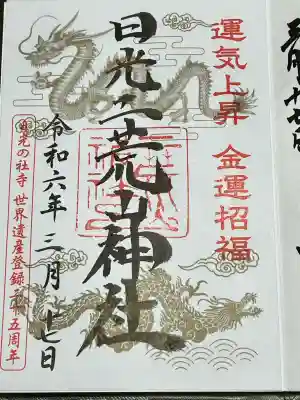 運気上昇 金運招福
日光二荒山神社
令和六年三月十七日
日光の社寺 世界遺産登録二十五周年